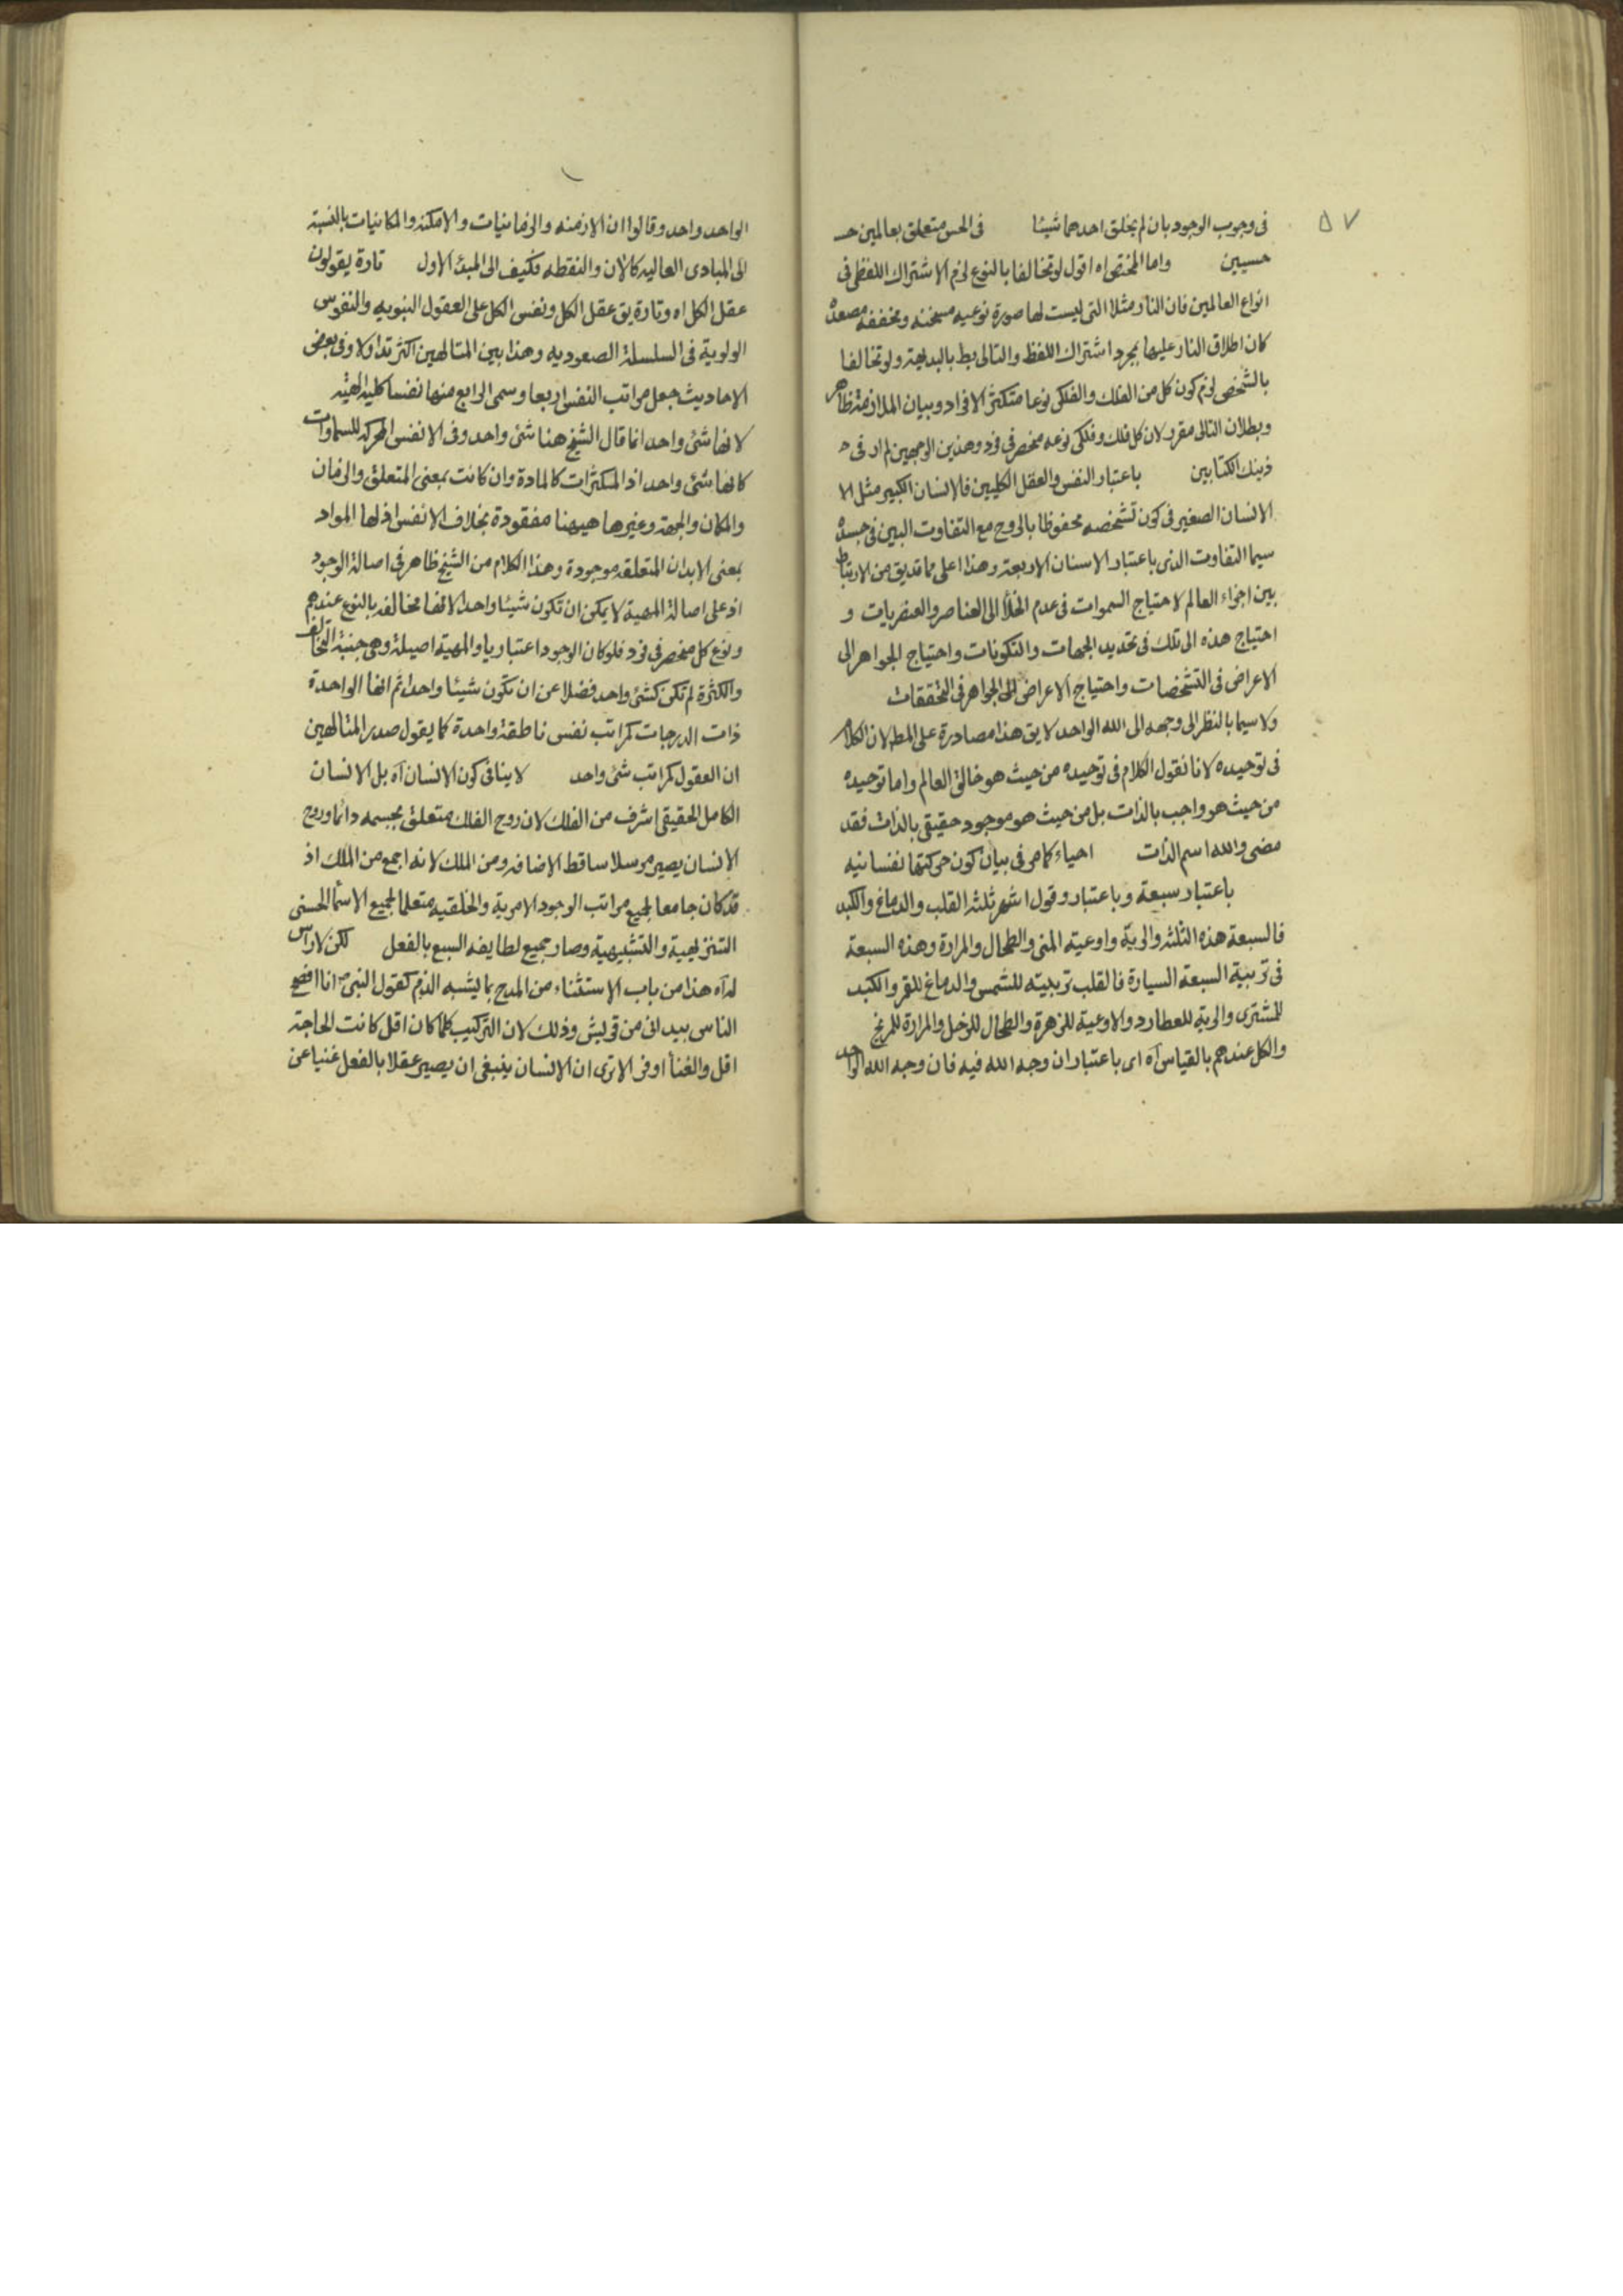 ٥٧
فى وجوب الوجود بان لم يخلق احدهما شيئا فى الحس متعلق بعالمين حسـ
حسيين واما المختص اه اقول لو تخالفا بالنوع لزم الاشتراك اللفظى فى
انواع العالمين فان النار مثلا التى ليست لها صورة نوعيه مسخنه ومخففه مصعدة
كان اطلاق النار عليها بمجرد اشتراك اللفظ والتالى بط بالبديهة ولو تخالفا
بالشخص لزم كون كل من الفلك والفلكى نوعا متكثر الافراد وبيان الملازمة ظاهر
وبطلان التالى مقرر لان كل فلك وفلكى نوعه منحصر فى فرد وهذين الوجهين لم ار فى
ذينك الكتابين باعتبار النفس والعقل الكليين فالانسان الكبير مثل الا
الانسان الصغير فى كون تشخصه محفوظا بالروح مع التفاوت البين فى جسده
سيما التفاوت الذى باعتبار الاسنان الاربعة وهذا اعلى مما قد يق من الارتباط
بين اجزاء العالم لاحتياج السموات فى عدم الخلأ الى العناصر والعنصريات و
احتياج هذه الى تلك فى تحديد الجهات والتكونات واحتياج الجواهر الى
الاعراض فى التشخصات واحتياج الاعراض الى الجواهر فى التحققات
ولا سيما بالنظر الى وجهه الى الله الواحد لا يق هذا مصادرة على المط لان الكلام
فى توحيده لانا نقول الكلام فى توحيده من حيث هو خالق العالم واما توحيده
من حيث هو واجب بالذات بل من حيث هو موجود حقيقى بالذات فقد
مضى والله اسم الذات احياء كما مر فى بيان كون حركتها نفسانيه
باعتبار سبعة وباعتبار وقول اشهر ثلثه القلب والدماغ والكبد
فالسبعة هذه الثلثه والرية واوعية المنى والطحال والمرارة وهذه السبعة
فى تربية السبعة السيارة فالقلب تربيته للشمس والدماغ للقمر والكبد
للمشترى والرية للعطارد والاوعية للزهرة والطحال للزحل والمرارة للمريخ
والكل عندهم بالقياس آه اى باعتبار ان وجه الله فيه فان وجه الله الواحد
الواحد واحد وقالوا ان الازمنه والزمانيات والامكنه والمكانيات بالنسبة
الى المبادى العاليه كالان والنقطه فكيف الى المبدء الاول تارة يقولون
عقل الكل اه وتارة يق عقل الكل ونفس الكل على العقول النبويه والنفوس
الولوية فى السلسلة الصعوديه وهذا بين المتالهين اكثر تداولا وفى بعض
الاحاديث جعل مراتب النفس اربعا وسمى الرابع منها نفسا كليه الهيه
لانها شئ واحد انما قال الشيخ هنا شئ واحد وفى الانفس المحركه للسماوات
كانها شئ واحد اذ المكثرات كالمادة وان كانت بمعنى المتعلق والزمان
والمكان والجهة وغيرها هيهنا مفقودة بخلاف الانفس اذ لها المواد
بمعنى الابدان المتعلقه موجودة وهذا الكلام من الشيخ ظاهر فى اصالة الوجود
اذ على اصالة المهية لا يمكن ان تكون شيئا واحدا لانها مخالفه بالنوع عندهم
ونوع كل منحصر فى فرد فلو كان الوجود اعتباريا والمهية اصيلة وهى جنبة التخالف
والكثرة لم تكن كشئ واحد فضلا عن ان تكون شيئا واحدا ثم انها الواحدة
ذات الدرجات كمراتب نفس ناطقة واحدة كما يقول صدر المتالهين
ان العقول كمراتب شئ واحد لا ينافى كون الانسان آه بل الانسان
الكامل الحقيقى اشرف من الفلك لان روح الفلك متعلق بجسمه دائما وروح
الانسان يصير مرسلا ساقط الاضافه ومن الملك لانه اجمع من الملك اذ
قد كان جامعا لجميع مراتب الوجود الامرية والخلقيه متعلما لجميع الاسماء الحسنى
التنزيهية والتشبيهية وصار جميع لطايفه السبع بالفعل لكن لا رأس
له آه هذا من باب الاستثناء من المدح بما يشبه الذم كقول النبى ص انا افصح
الناس بيد انى من قريش وذلك لان التركيب كلما كان اقل كانت الحاجة
اقل والغنأ اوفر الا ترى ان الانسان ينبغى ان يصير عقلا بالفعل غنيا عن